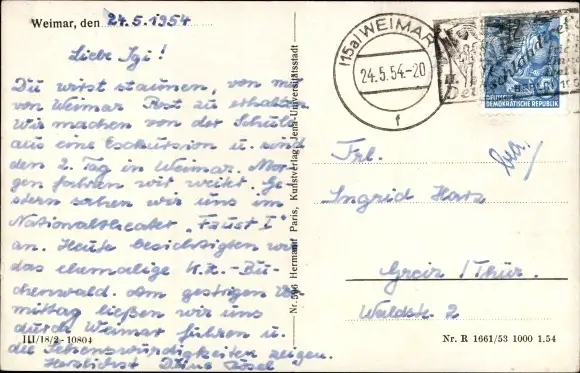 Weimar, den 24.5.1954
Liebe Igi!
Du wirst staunen, von mir
von Weimar Post zu erhalten.
Wir machen von der Schule
aus eine Exkursion u. sind
den 2. Tag in Weimar. Mor-
gen fahren wir weiter. Ge-
stern sahen wir uns im
Nationaltheater „Faust I"
an. Heute besichtigten wir
das ehemalige K.Z.-Bu-
chenwald. Am gestrigen
mittag ließen wir uns
durch Weimar führen u.
die Sehenswürdigkeiten zeigen.
Herzlichst Deine
III/18/2-10804
Nr. 596 Hermann Paris, Kunstverlag, Jena-Universitätsstadt
(15a) WEIMAR
24.5.54-20
f
DEUTSCHE
DEMOKRATISCHE REPUBLIK
Frl.
Ingrid
Greiz/Thür.
Waldstr. 2
Nr. R 1661/53 1000 1.54